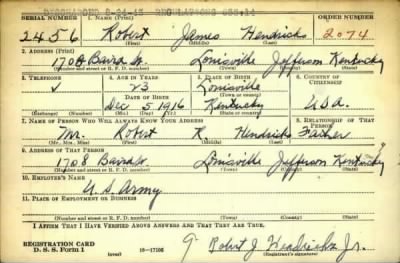 SERIAL NUMBER 1. NAME (Print) ORDER NUMBER
2456 Robert James Hendricks 2074
(First) (Middle) (Last)
2. ADDRESS (Print)
1708 Baird St. Louisville Jefferson Kentucky
(Number and street or R. F. D. number) (Town) (County) (State)
3. TELEPHONE 4. AGE IN YEARS 5. PLACE OF BIRTH 6. COUNTRY OF CITIZENSHIP
23 Louisville
DATE OF BIRTH
Dec 5 1916 Kentucky U.S.A.
7. NAME OF PERSON WHO WILL ALWAYS KNOW YOUR ADDRESS 8. RELATIONSHIP OF THAT PERSON
Mr. Robert R. Hendricks Father
(Mr., Mrs., Miss) (First) (Middle) (Last)
9. ADDRESS OF THAT PERSON
1708 Baird St. Louisville Jefferson Kentucky
(Number and street or R. F. D. number) (Town) (County) (State)
10. EMPLOYER'S NAME
U. S. Army
11. PLACE OF EMPLOYMENT OR BUSINESS
(Number and street or R. F. D. number) (Town) (County) (State)
I AFFIRM THAT I HAVE VERIFIED ABOVE ANSWERS AND THAT THEY ARE TRUE.
REGISTRATION CARD
D. S. S. Form 1 (over) 16-17105 Robert J Hendricks Jr.
(Registrant's signature)